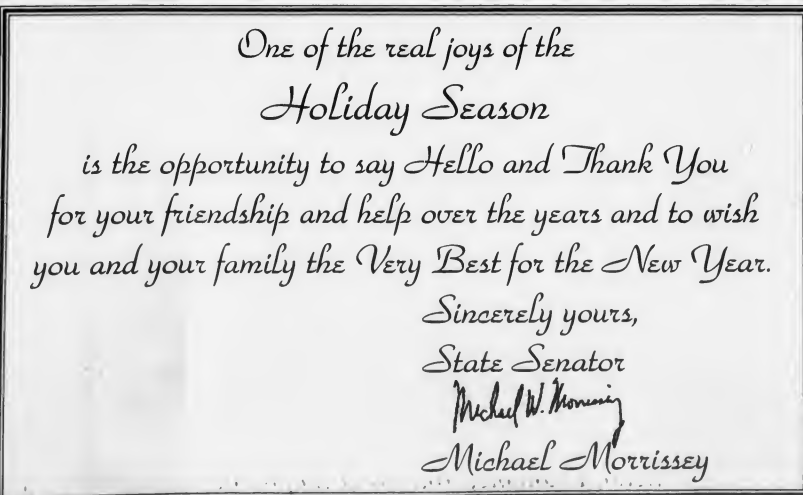 One of the real joys of the
Holiday Season
is the opportunity to say Hello and Thank You
for your friendship and help over the years and to wish
you and your family the Very Best for the New Year.
Sincerely yours,
State Senator
Michael W. Morrissey
Michael Morrissey